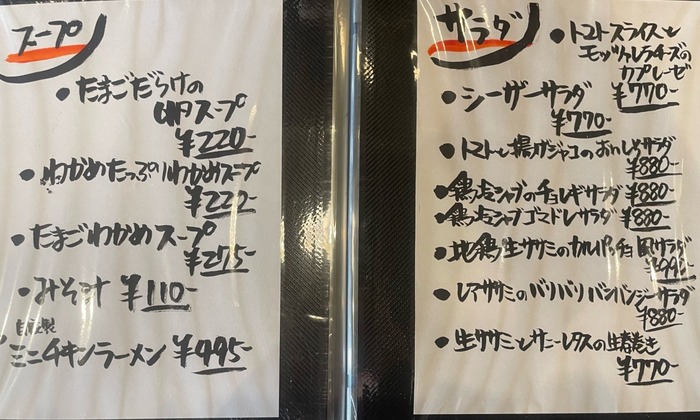 スープ
・たまごだらけの
卵スープ
¥220-
・わかめたっぷりわかめスープ
¥222-
・たまごわかめスープ
¥275-
・みそ汁 ¥110-
自家製
ミニチキンラーメン ¥495-
サラダ
・トマトスライスと
モッツァレラチーズの
カプレーゼ
¥770-
・シーザーサラダ
¥770-
・トマトと揚げジャコのおいしいサラダ
¥880-
・鶏塩シャブのチョレギサラダ ¥880-
・鶏塩シャブゴマドレサラダ ¥880-
・地鶏生ササミのカルパッチョ風サラダ
¥995-
・レアササミのバリバリバンバンジーサラダ
¥880-
・生ササミとサニーレタスの生春巻き
¥770-